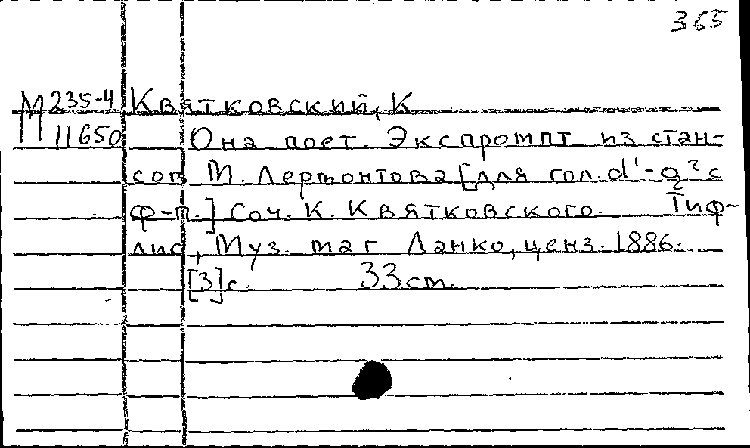 365
М 235-4 Квятковский, К
11650 Она поет. Экспромпт из стан-
сов М. Лермонтова [для гол. d¹-g² с
ф-п.] Соч. К. Квятковского. Тиф-
лис, Муз. маг Ланко, ценз. 1886.
[3] с. 33 см.